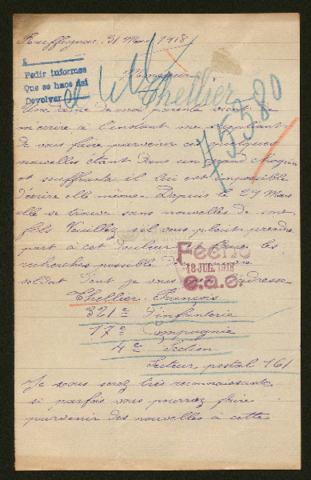 Rouffignac, 31 Mai 1918
Pedir informes
Que se haga así
Devolver
Monsieur
Thellier
75380
Une dame de mes parents vient
me écrire à l'instant me
de vous faire parvenir ces quelques
nouvelles étant dans un grand chagrin
et souffrante il lui est impossible
d'écrire elle même. Depuis le 27 Mai
elle se trouve sans nouvelles de son
fils Veuillez s'il vous plait prendre
part à cet douleur et faire les
recherches possible de
soldat dont je vous adresse
Fecho
18 JUL. 1918
c.a.e.
Thellier François
321e d'infanterie
17e Compagnie
4e Section
Secteur postal 161
Je vous serez très reconnaissante
si parfois vous pourrez faire
parvenir des nouvelles à cette